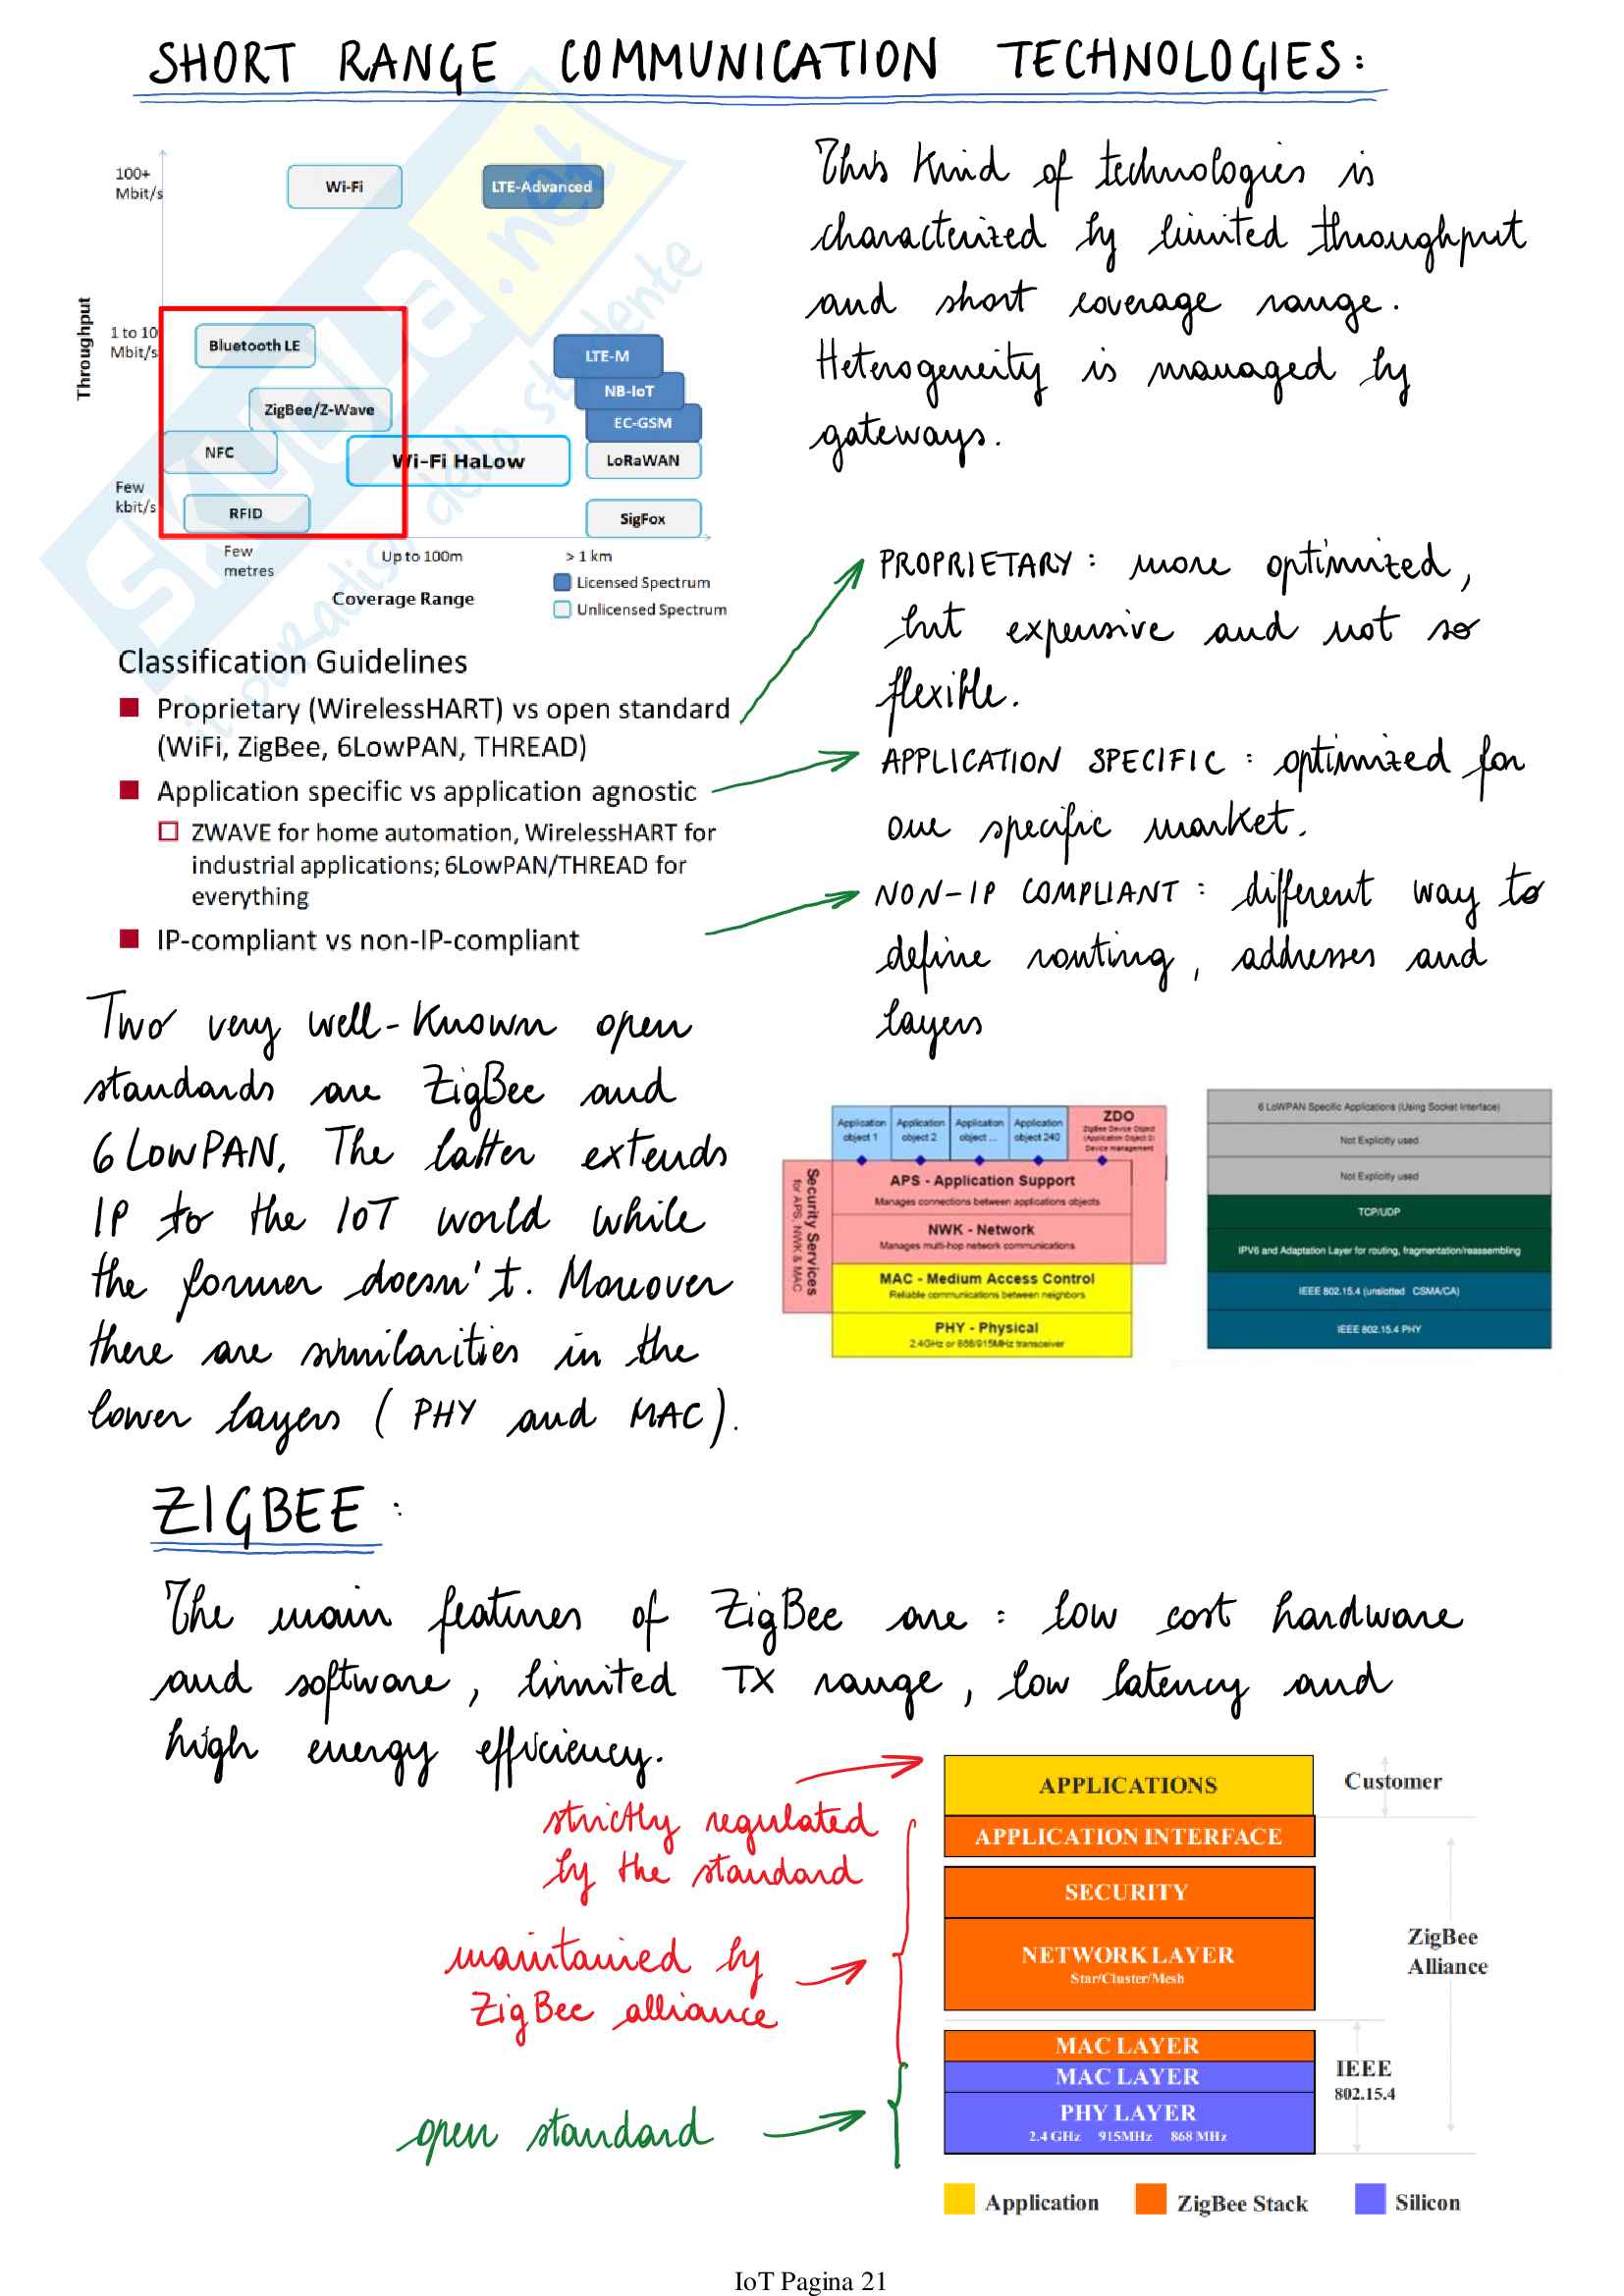 SHORT RANGE COMMUNICATION TECHNOLOGIES:
100+
Mbit/s
Wi-Fi
LTE-Advanced
Throughput
1 to 10
Mbit/s
Bluetooth LE
LTE-M
NB-IoT
ZigBee/Z-Wave
EC-GSM
NFC
Wi-Fi HaLow
LoRaWAN
Few
kbit/s
RFID
SigFox
Few
metres
Up to 100m
> 1 km
Coverage Range
Licensed Spectrum
Unlicensed Spectrum
This kind of technologies is
characterized by limited throughput
and short coverage range.
Heterogeneity is managed by
gateways.
Classification Guidelines
Proprietary (WirelessHART) vs open standard
(WiFi, ZigBee, 6LowPAN, THREAD)
Application specific vs application agnostic
ZWAVE for home automation, WirelessHART for
industrial applications; 6LowPAN/THREAD for
everything
IP-compliant vs non-IP-compliant
PROPRIETARY: more optimized,
but expensive and not so
flexible.
APPLICATION SPECIFIC: optimized for
one specific market.
NON-IP COMPLIANT: different way to
define routing, addresses and
layers
Two very well-known open
standards are ZigBee and
6LowPAN. The latter extends
IP to the IoT world while
the former doesn't. Moreover
there are similarities in the
lower layers (PHY and MAC).
Application
object 1
Application
object 2
Application
object ...
Application
object 240
ZDO
ZigBee Device Object
(Application Object 0)
Device management
Security Services
for APS, NWK & MAC
APS - Application Support
Manages connections between applications objects
NWK - Network
Manages multi-hop network communications
MAC - Medium Access Control
Reliable communications between neighbors
PHY - Physical
2.4GHz or 868/915MHz transceiver
6 LoWPAN Specific Applications (Using Socket Interface)
Not Explicitly used
Not Explicitly used
TCP/UDP
IPV6 and Adaptation Layer for routing, fragmentation/reassembling
IEEE 802.15.4 (unslotted CSMA/CA)
IEEE 802.15.4 PHY
ZIGBEE:
The main features of ZigBee are: low cost hardware
and software, limited TX range, low latency and
high energy efficiency.
strictly regulated
by the standard
maintained by
ZigBee alliance
open standard
APPLICATIONS
Customer
APPLICATION INTERFACE
SECURITY
NETWORK LAYER
Star/Cluster/Mesh
ZigBee
Alliance
MAC LAYER
MAC LAYER
PHY LAYER
2.4 GHz 915MHz 868 MHz
IEEE
802.15.4
Application
ZigBee Stack
Silicon
skuola.net
il paradiso dello studente
IoT Pagina 21